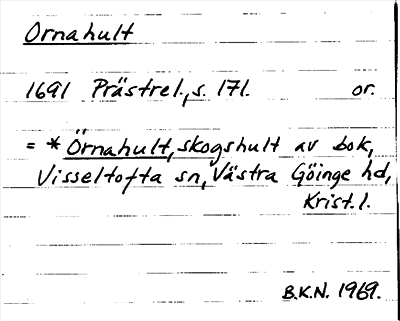 Ornahult
1691 Prästrel., s. 171. or.
= * Örnahult, skogshult av bok,
Visseltofta sn, Västra Göinge hd,
Krist. l.
B.K.N. 1969.